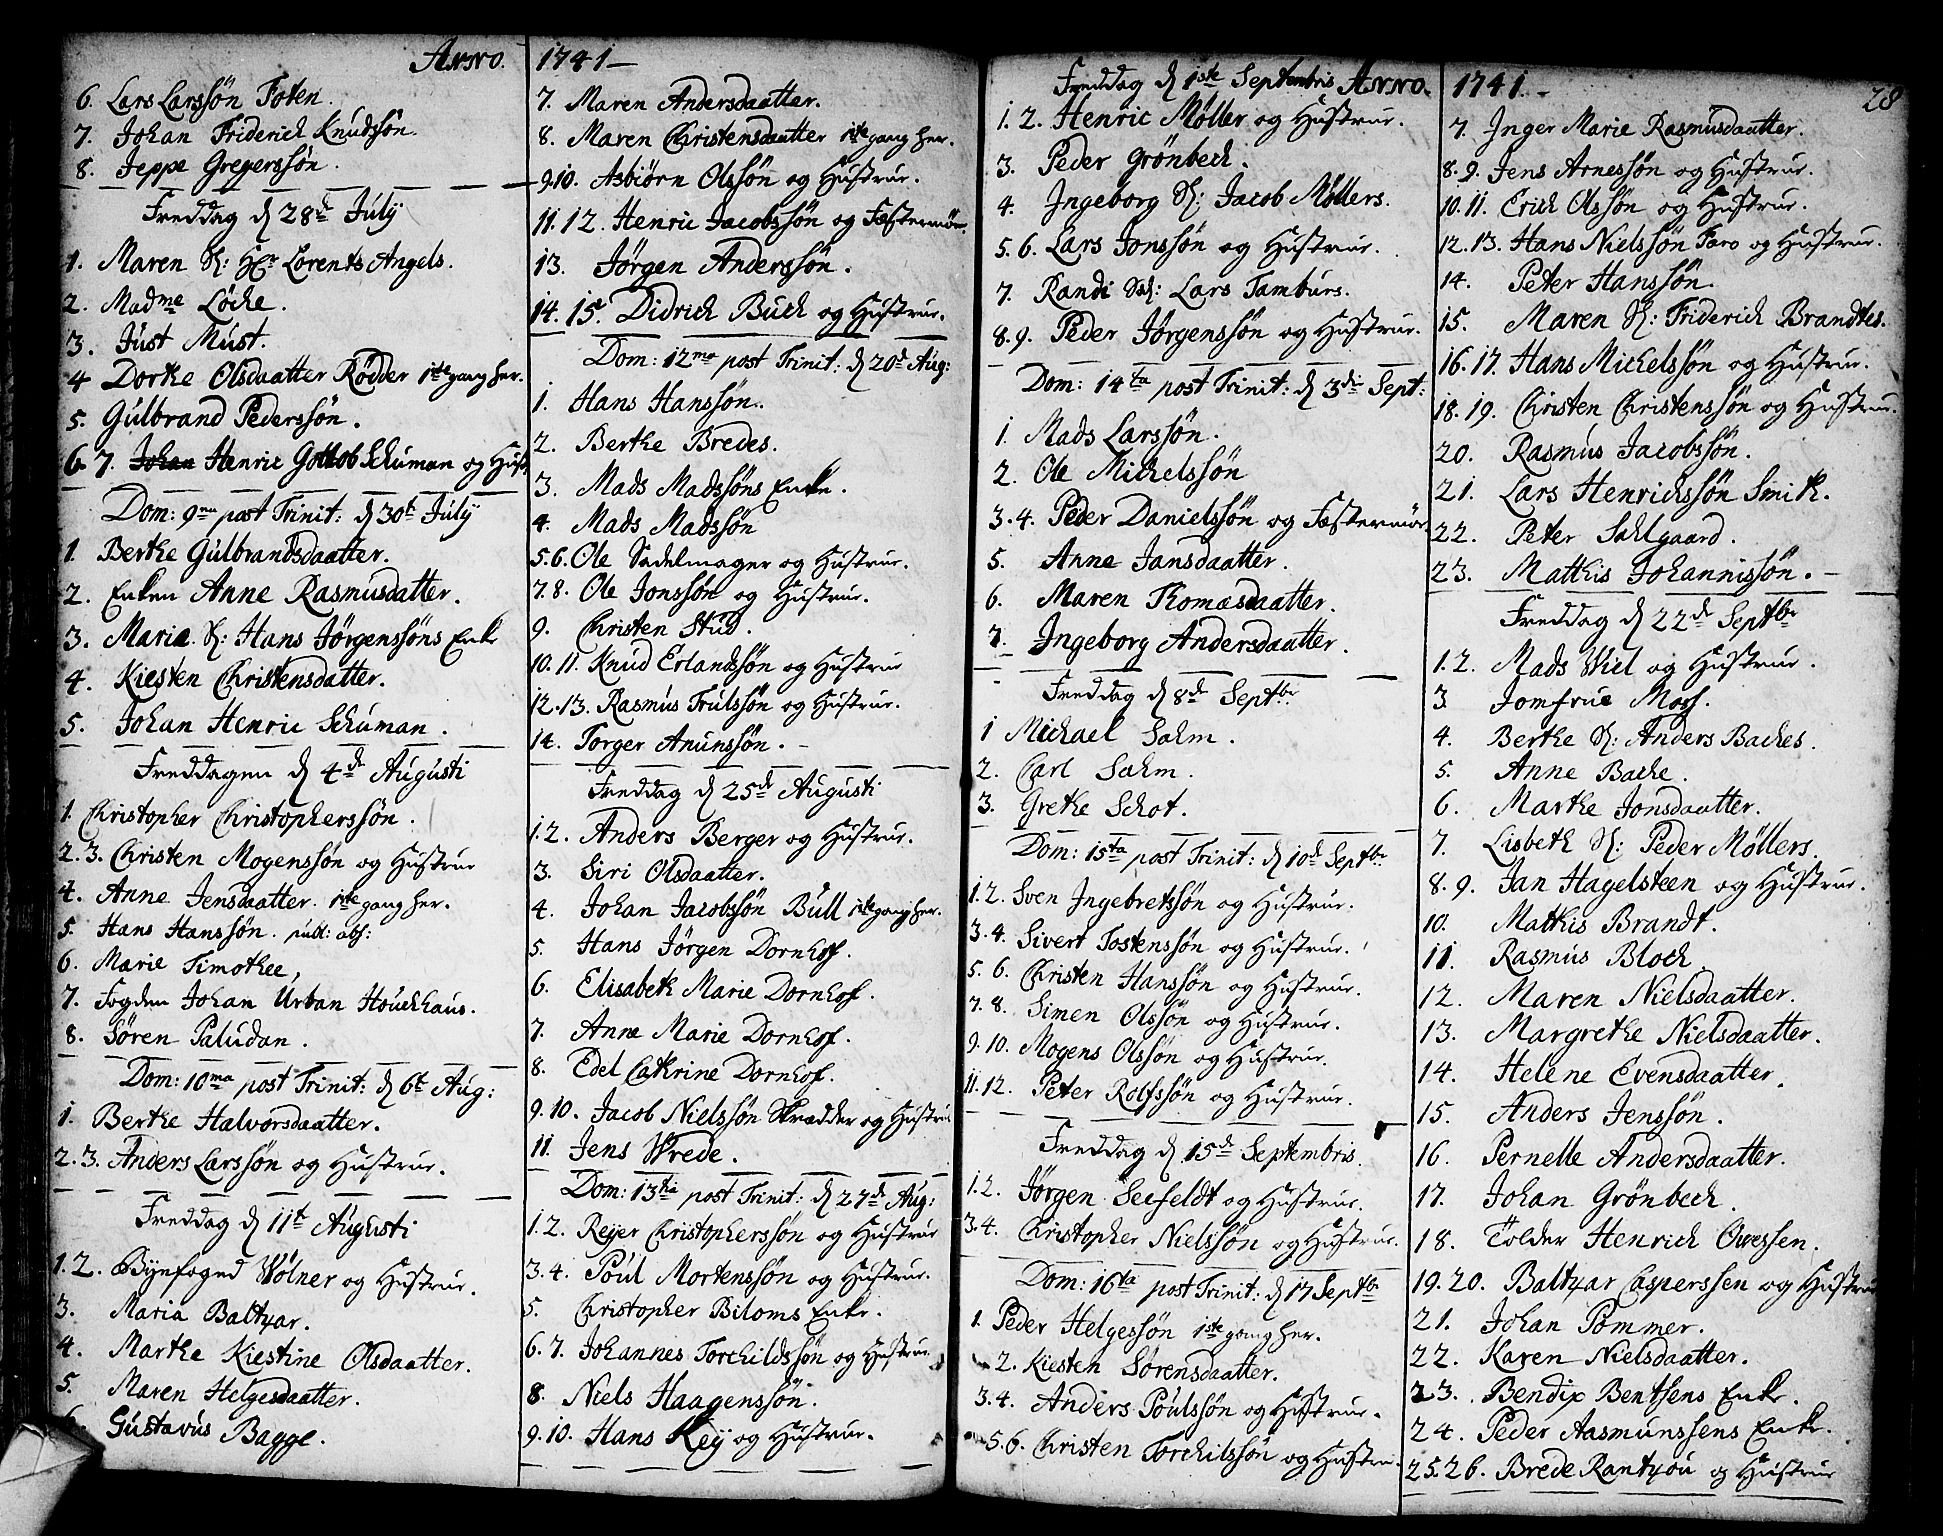 Anno.
6. Lars Larssøn Foten.
7. Johan Friderich Knudssøn.
8. Jeppe Gregerssøn.
Freddag d 28de July
1. Maren S: Hr Lorents Angels.
2. Madme Løche.
3. Just Must.
4 Dorthe Olsdaatter Rødder 1ste gang her.
5. Gulbrand Pederssøn.
6. 7. Johan Henric Gottlob Schuman og Hust
Dom: 9na post Trinit: d 30te July
1. Berthe Gulbrandsdaatter.
2. Enken Anne Rasmusdatter.
3. Maria S: Hans Jørgenssøns Enke
4. Kiesten Christensdatter.
5. Johan Henric Schuman.
Freddagen d 4de Augusti
1. Christopher Christopherssøn.
2. 3. Christen Mogenssøn og Hustrur
4. Anne Jensdaatter. 1ste gang her.
5. Hans Hanssøn. publ: abs:
6. Marie Timothee,
7. Fogden Johan Urban Houchhaus.
8. Søren Paludan.
Dom: 10ma post Trinit: d 6te Aug:
1. Berthe Halvorsdaatter.
2. 3. Anders Larssøn og Hustrur.
Freddag d 11te Augusti
1. 2. Byefoged Wølner og Hustrur.
3. Maria Baltzar.
4. Marthe Kiestine Olsdaatter.
5. Maren Helgesdaatter.
6. Gustavus Bagge.
1741
7. Maren Andersdaatter.
8. Maren Christensdaatter 1ste gang her.
9. 10. Asbiørn Olssøn og Hustrur.
11. 12. Henric Jacobssøn og Fæstermøe
13. Jørgen Anderssøn.
14. 15. Didrich Buch og Hustrur.
Dom: 12ma post Trinit: d 20de Aug:
1. Hans Hanssøn.
2. Berthe Bredes.
3. Mads Madssøns Enke.
4. Mads Madssøn
5. 6. Ole Sadelmager og Hustrur.
7. 8. Ole Jonssøn og Hustrur.
9. Christen Stud.
10. 11. Knud Erlandssøn og Hustrur
12. 13. Rasmus Trulssøn og Hustrur.
14. Torger Anunssøn.
Freddag d 25de Augusti
1. 2. Anders Berger og Hustrur.
3. Siri Olsdaatter.
4. Johan Jacobssøn Bull 1ste gang her.
5. Hans Jørgen Dornhof.
6. Elisabeth Marie Dornhof.
7. Anne Marie Dornhof.
8. Edel Cathrine Dornhof.
9. 10. Jacob Nielssøn Skrædder og Hustru
11. Jens Wrede.
Dom: 13tia post Trinit: d 27de Aug:
1. 2. Rejer Christopherssøn og Hustrur
3. 4. Poul Mortenssøn og Hustrur.
5. Christopher Biloms Enke.
6. 7. Johannes Torchildssøn og Hustrur
8. Niels Haagenssøn.
9. 10. Hans Keij og Hustrur.
Freddag d 1ste Septembris Anno.
1. 2. Henric Møller og Hustrur.
3. Peder Grønbech.
4. Ingeborg S: Jacob Møllers.
5. 6. Lars Jonssøn og Hustrur.
7. Randi Sal: Lars Tamburs.
8. 9. Peder Jørgenssøn og Hustrur.
Dom: 14ta post Trinit: d 3die Sept:
1. Mads Larssøn.
2. Ole Michelssøn
3. 4. Peder Danielssøn og Fæstermøe
5. Anne Jansdaatter.
6. Maren Thomæsdaatter.
7. Ingeborg Andersdaatter.
Freddag d 8de Septbr
1 Michael Sahm.
2. Carl Sahm.
3. Grethe Schot.
Dom: 15ta post Trinit: d 10de Septbr
1. 2. Sven Ingebretssøn og Hustrur.
3. 4. Sivert Tostenssøn og Hustrur.
5. 6. Christen Hanssøn og Hustrur.
7. 8. Simen Olssøn og Hustrur.
9. 10. Mogens Olssøn og Hustrur.
11. 12. Peter Rolfssøn og Hustrur.
Freddag d 15de Septembris.
1. 2. Jørgen Seefeldt og Hustrur.
3. 4. Christopher Nielssøn og Hustrur.
Dom: 16ta post Trinit: d 17 Septbr
1. Peder Helgessøn 1ste gang her.
2. Kiesten Sørensdaatter.
3. 4. Anders Poulssøn og Hustrur.
5. 6. Christen Torchilssøn og Hustru
1741.
28
7. Inger Marie Rasmusdaatter.
8. 9. Jens Arnessøn og Hustrur.
10. 11. Erich Olssøn og Hustrur.
12. 13. Hans Nielssøn Faro og Hustrur.
14. Peter Hanssøn.
15. Maren S: Friderich Brandtes.
16. 17. Hans Michelssøn og Hustrur.
18. 19. Christen Christenssøn og Hustrur.
20. Rasmus Jacobssøn.
21. Lars Henrichssøn Smith.
22. Peter Sahlgaard.
23. Matthis Johannissøn.
Freddag d 22de Septbr
1. 2. Mads Wiel og Hustrur.
3 Jomfrue Moss.
4. Berthe S: Anders Baches.
5. Anne Bache.
6. Marthe Jonsdaatter.
7. Lisbeth S: Peder Møllers.
8. 9. Jan Hagelsteen og Hustrur.
10. Matthis Brandt.
11. Rasmus Bloch
12. Maren Nielsdaatter.
13. Margrethe Nielsdaatter.
14. Helene Evensdaatter.
15. Anders Jenssøn.
16. Pernelle Andersdaatter.
17. Johan Grønbech.
18. Tolder Henrich Owessen.
19. 20. Baltzar Casperssen og Hustrur
21. Johan Pommer.
22. Karen Nielsdaatter.
23. Bendix Bentsens Enke.
24. Peder Aasmunssens Enke.
25. 26. Brede Rantzou og Hustrur